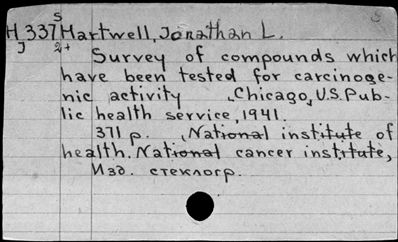 S S
H 337 Hartwell, Jonathan L.
J 2+
Survey of compounds which
have been tested for carcinoge-
nic activity Chicago, U.S. Pub-
lic health service, 1941.
371 p. National institute of
health. National cancer institute,
Изд. стеклогр.